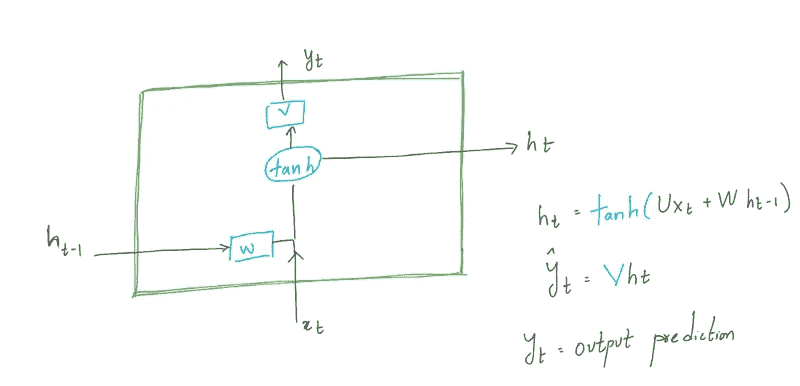 y_t
V
tanh
h_t
h_{t-1}
W
x_t
h_t = tanh(Ux_t + W h_{t-1})
ŷ_t = Vh_t
y_t = output prediction